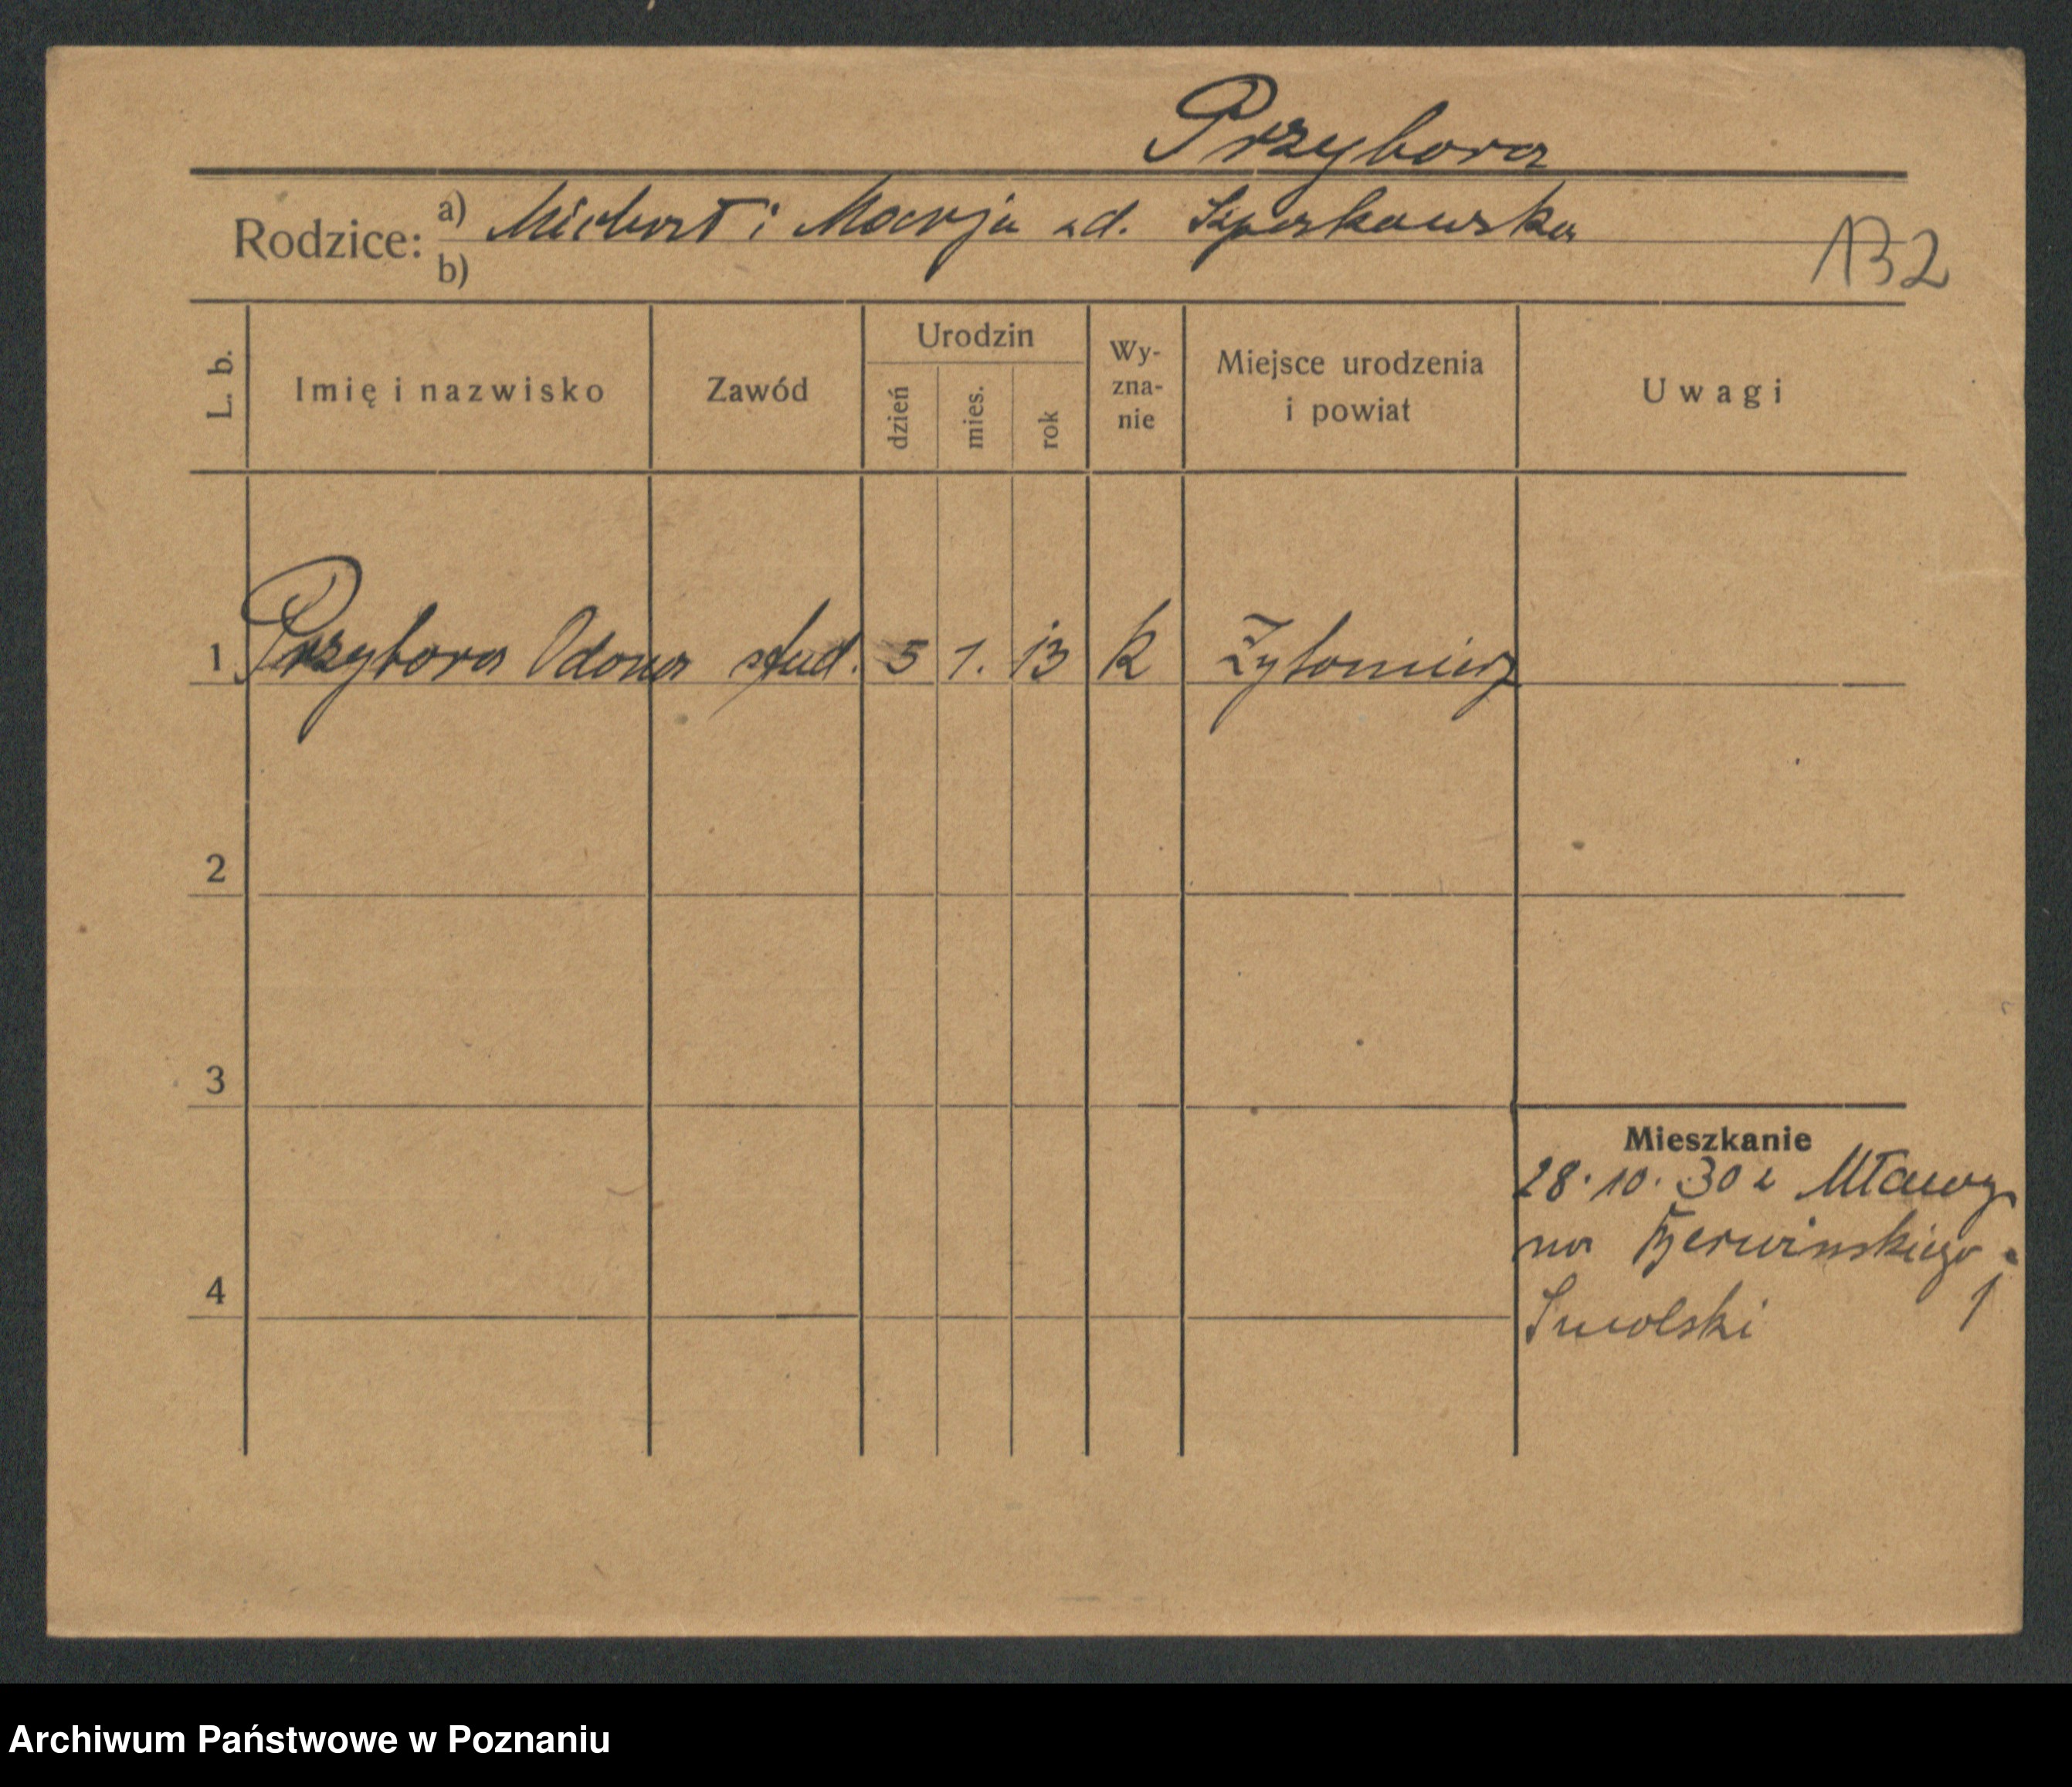 Przybora
Rodzice: a) Michał i Marja zd. Szperkowska
b)
132
L. b.
Imię i nazwisko
Zawód
Urodzin
dzień
mies.
rok
Wy-
zna-
nie
Miejsce urodzenia
i powiat
Uwagi
1 Przybora Odona stud. 5 1. 13 k Żytomierz
2
3
4
Mieszkanie
28.10.30 z Mławy
na Berwińskiego
1
Smolski
Archiwum Państwowe w Poznaniu